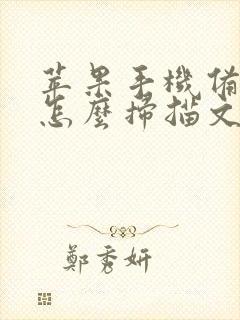 苹果手機備
怎麼掃描文
鄭秀妍